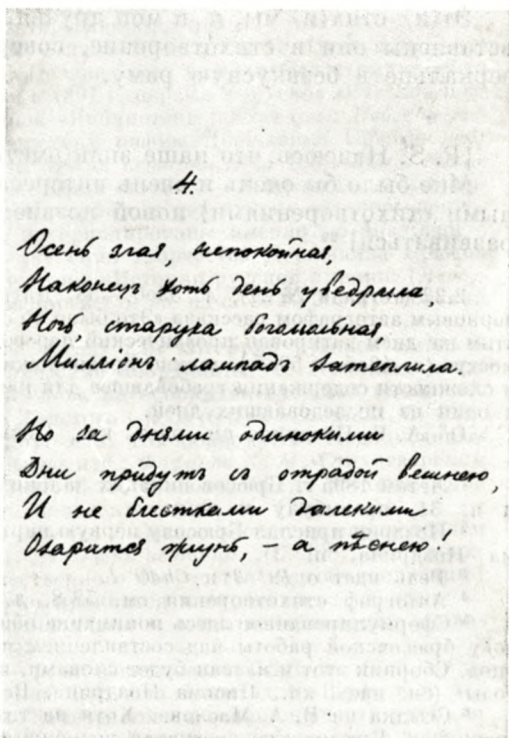 4.
Осень злая, непокойная,
Наконецъ хоть день уведрила
Ночь, старуха богомольная
Милліонъ лампадъ затеплила.
Но за днями одинокими
Дни придутъ съ отрадой вешнею,
И не блестками далекими
Озарится жизнь, – а пѣснею!